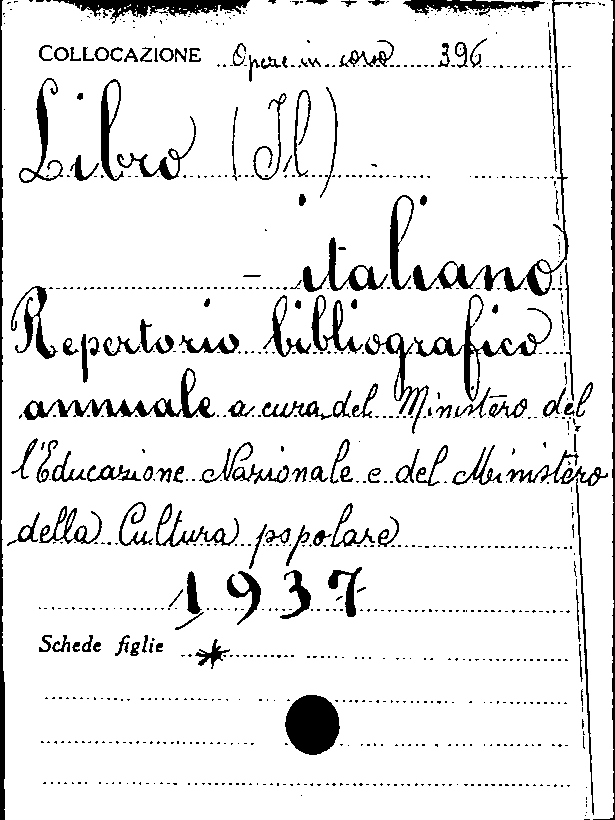 COLLOCAZIONE Opere in corso 396
Libro (Il)
- italiano
Repertorio bibliografico
annuale a cura del Ministero del
l'Educazione Nazionale e del Ministero
della Cultura popolare
1937
Schede figlie *